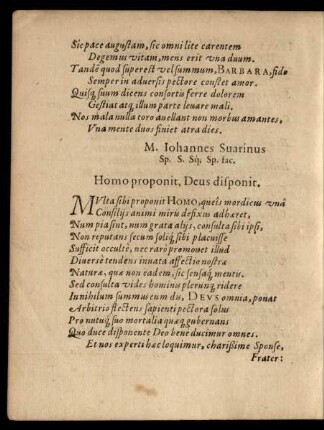 Sic pace augustam, sic omni lite carentem
Degemus vitam, mens erit vna duum.
Tandē quod superest vel summum, BARBARA, fido
Semper in adversis pectore constet amor.
Quisq̃ suum dicens consortū ferre dolorem
Gestiat atq; illum parte levare mali.
Nos mala nulla toro avellant non morbus amantes,
Vna mente duos finiet atra dies.
M. Iohannes Suarinus
Sp. S. Sij, Sp. fac.
Homo proponit, Deus disponit.
MVlta sibi proponit HOMO, queîs mordicus vnā
Consilijs animi mirū defixus adhæret,
Num pia sint, num grata alijs, consulta sibi ipsi,
Non reputans secum soliq̃ sibi placuisse
Sufficit occultè, nec raro promovet illud
Diversè tendens innata affectio nostræ
Naturæ, quæ non eadem, sic sensaq̃ mentis.
Sed consulta vides hominis plerunq̃ ridere
In nihilum summus cum dis, DEVS omnia, ponat
Arbitrio flectens sapienti pectora solus
Pro nutuq̃ suo mortalia quæq̃ gubernans
Quo duce disponente Deo bene ducimur omnes.
Et nos experti hæc loquimur, charissime Sponse,
Frater: